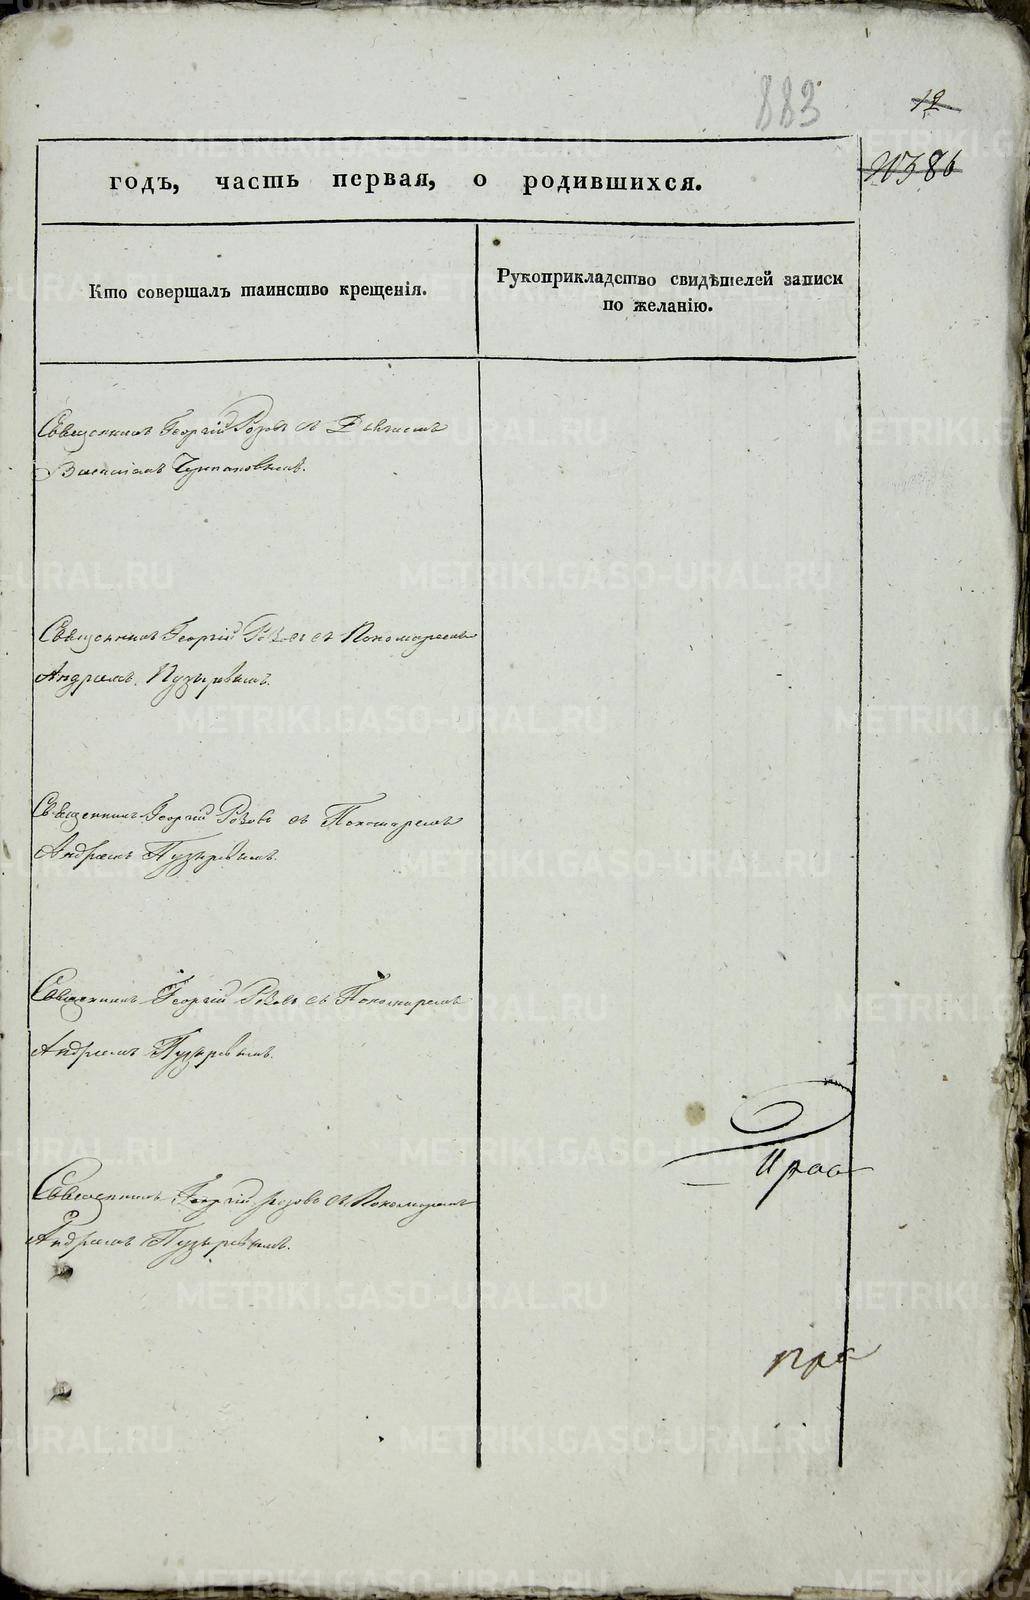 883
12
№386
годъ, часть первая, о родившихся.
Кто совершалъ таинство крещенія.
Рукоприкладство свидѣтелей записи
по желанію.
Священникъ Георгій Розовъ съ
Священникъ Георгій Розовъ съ Пономаремъ
Андреемъ Пузыревымъ.
Священникъ Георгій Розовъ съ Пономаремъ
Андреемъ Пузыревымъ.
Священникъ Георгій Розовъ съ Пономаремъ
Андреемъ Пузыревымъ.
Священникъ Георгій Розовъ съ Пономаремъ
Андреемъ Пузыревымъ.
METRIKI.GASO-URAL.RU